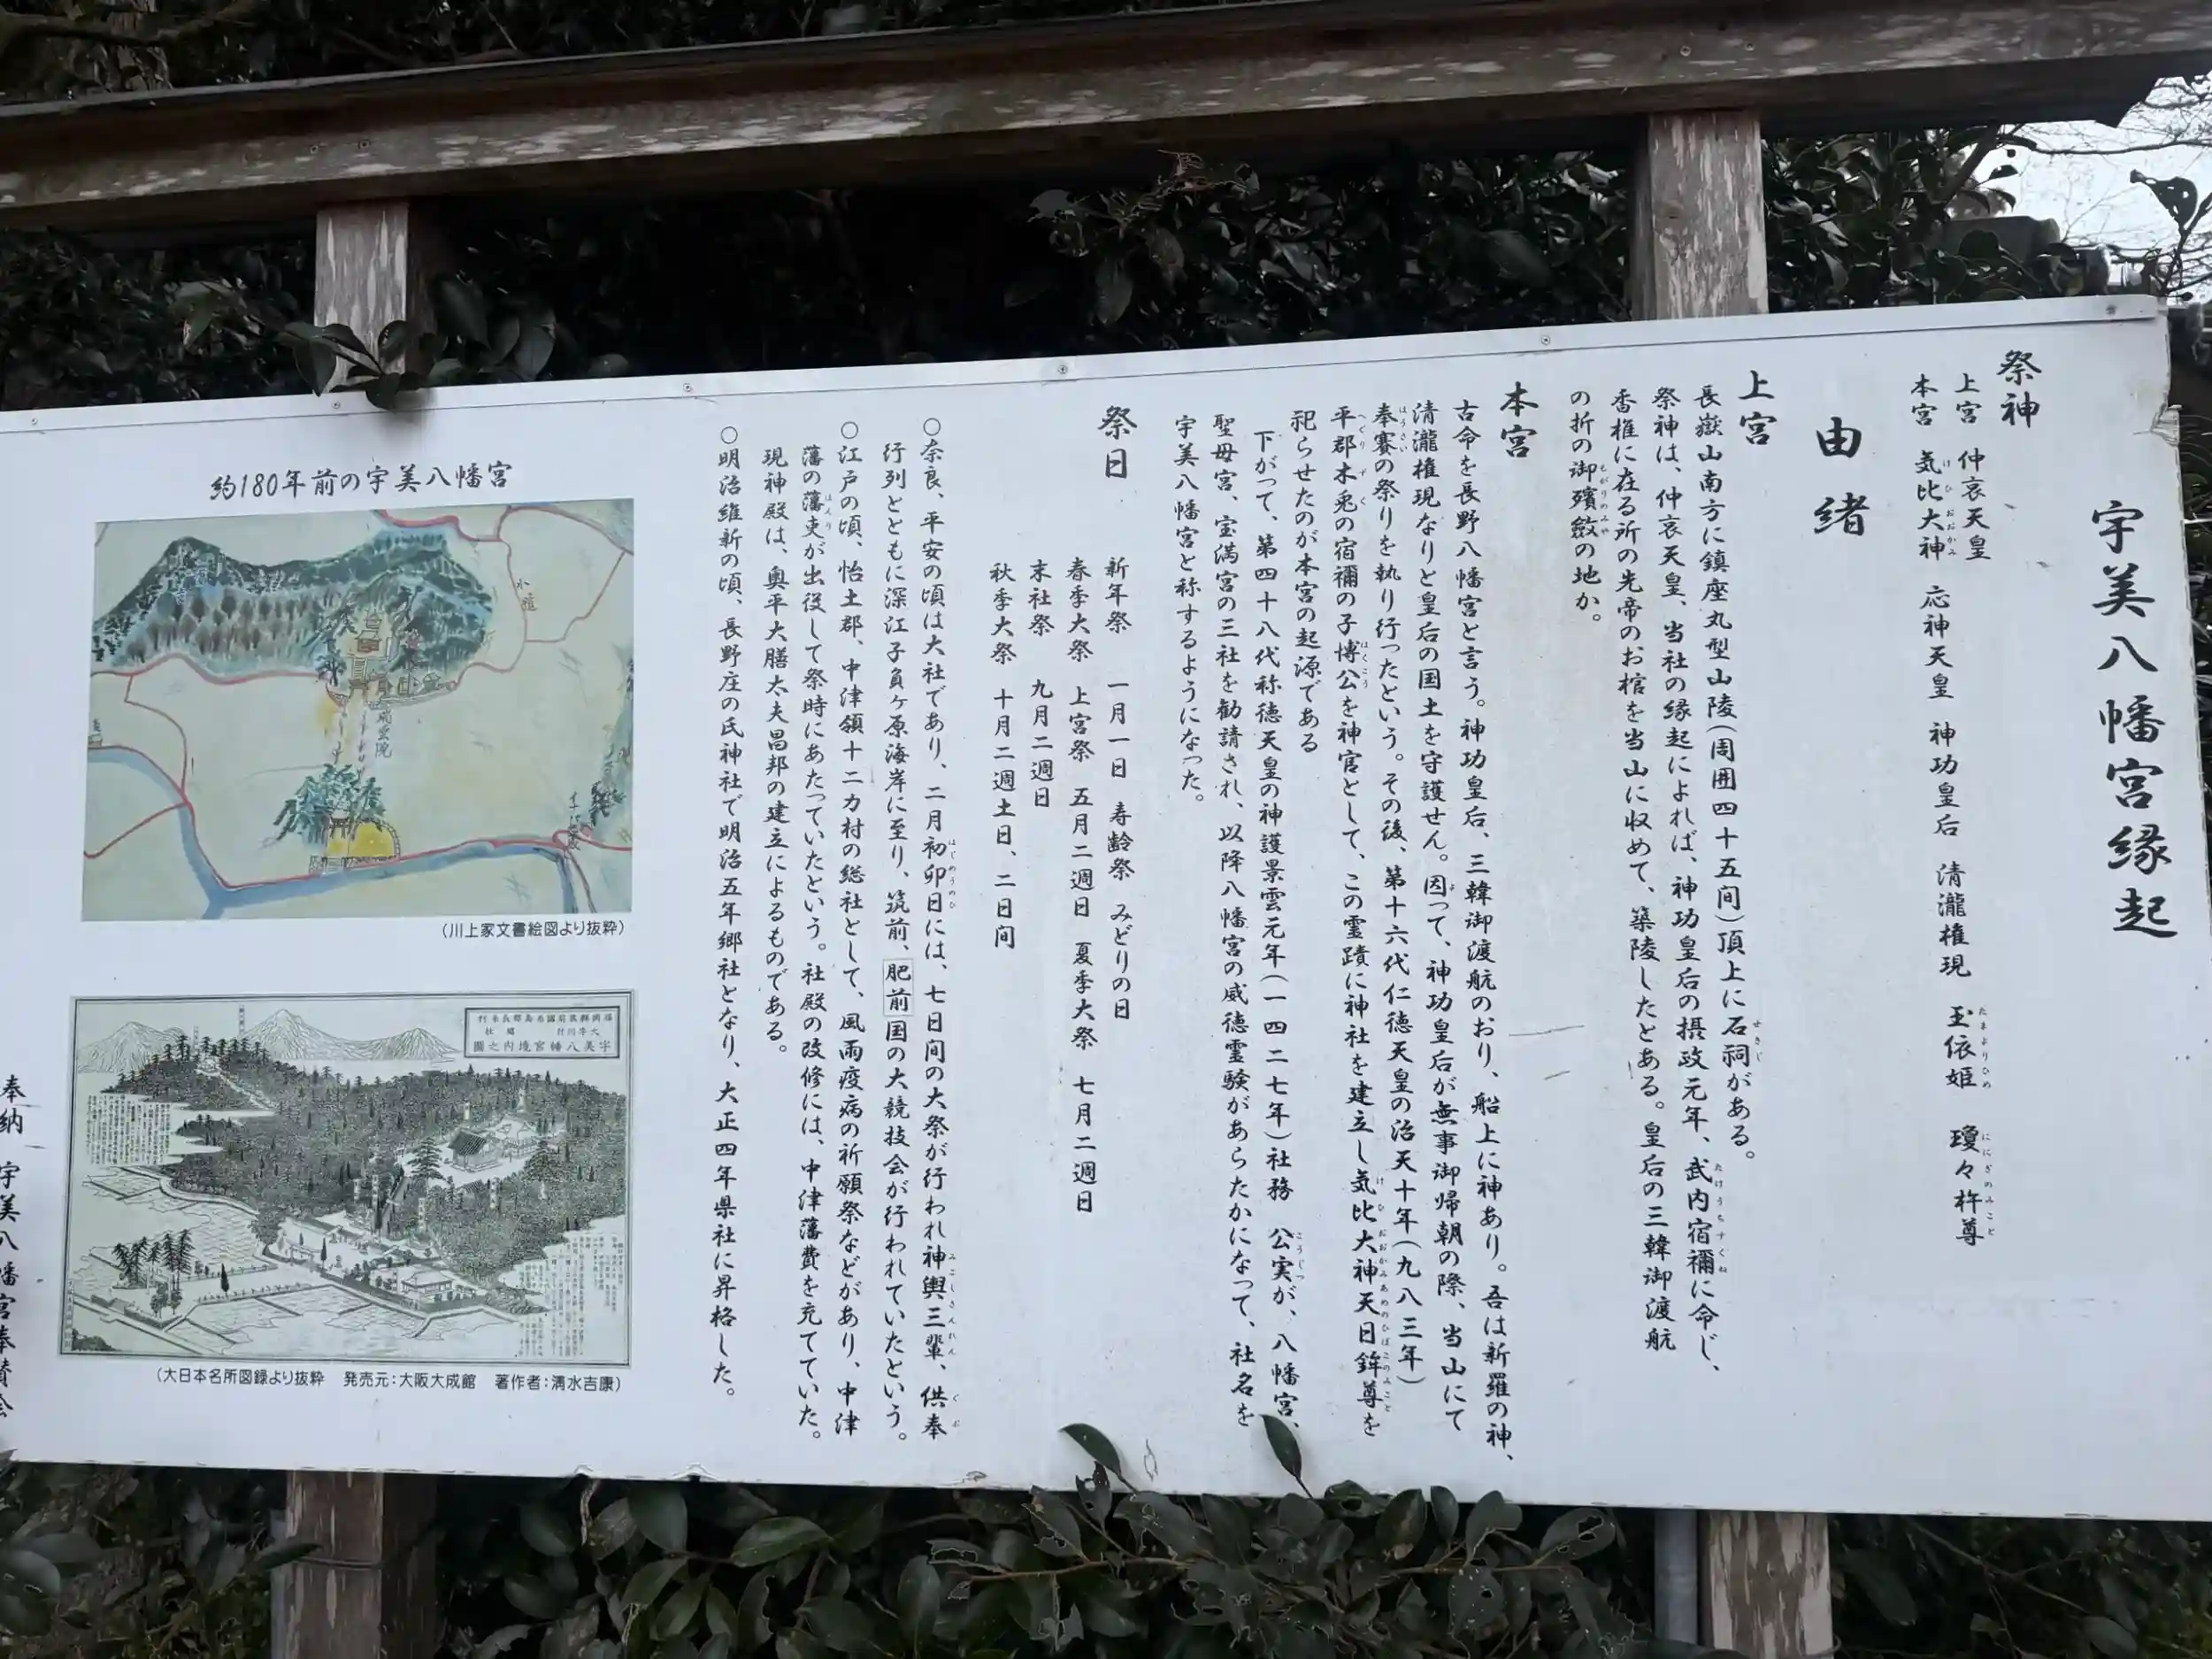 宇美八幡宮縁起
祭神
上宮 仲哀天皇
本宮 気比大神 応神天皇 神功皇后 清瀧権現 玉依姫 瓊々杵尊
由緒
上宮
長嶽山南方に鎮座丸型山陵(周囲四十五間)頂上に石祠がある。
祭神は、仲哀天皇、当社の縁起によれば、神功皇后の摂政元年、武内宿禰に命じ、
香椎に在る所の先帝のお棺を当山に収めて、築陵したとある。皇后の三韓御渡航
の折の御殯斂の地か。
本宮
古命を長野八幡宮と言う。神功皇后、三韓御渡航のおり、船上に神あり。吾は新羅の神、
清瀧権現なりと皇后の国土を守護せん。因って、神功皇后が無事御帰朝の際、当山にて
奉賽の祭りを執り行ったという。その後、第十六代仁徳天皇の治天十年(九八三年)
平郡木兎の宿禰の子博公を神官として、この霊蹟に神社を建立し気比大神天日鉾尊を
祀らせたのが本宮の起源である
下がって、第四十八代称徳天皇の神護景雲元年(一四二七年)社務 公実が、八幡宮、
聖母宮、宝満宮の三社を勧請され、以降八幡宮の威徳霊験があらたかになって、社名を
宇美八幡宮と称するようになった。
祭日
新年祭 一月一日 寿齢祭 みどりの日
春季大祭 上宮祭 五月二週日 夏季大祭 七月二週日
末社祭 九月二週日
秋季大祭 十月二週土日、二日間
○奈良、平安の頃は大社であり、二月初卯日には、七日間の大祭が行われ神輿三輩、供奉
行列とともに深江子負ヶ原海岸に至り、筑前、肥前国の大競技会が行われていたという。
○江戸の頃、怡土郡、中津領十二カ村の総社として、風雨疫病の祈願祭などがあり、中津
藩の藩吏が出役して祭時にあたっていたという。社殿の改修には、中津藩費を充てていた。
現神殿は、奥平大膳太夫昌邦の建立によるものである。
○明治維新の頃、長野庄の氏神社で明治五年郷社となり、大正四年県社に昇格した。
約180年前の宇美八幡宮
(川上家文書絵図より抜粋)
宇美八幡宮境内之圖
(大日本名所図録より抜粋 発売元:大阪大成館 著作者:清水吉康)
奉納 宇美八幡宮奉賛会